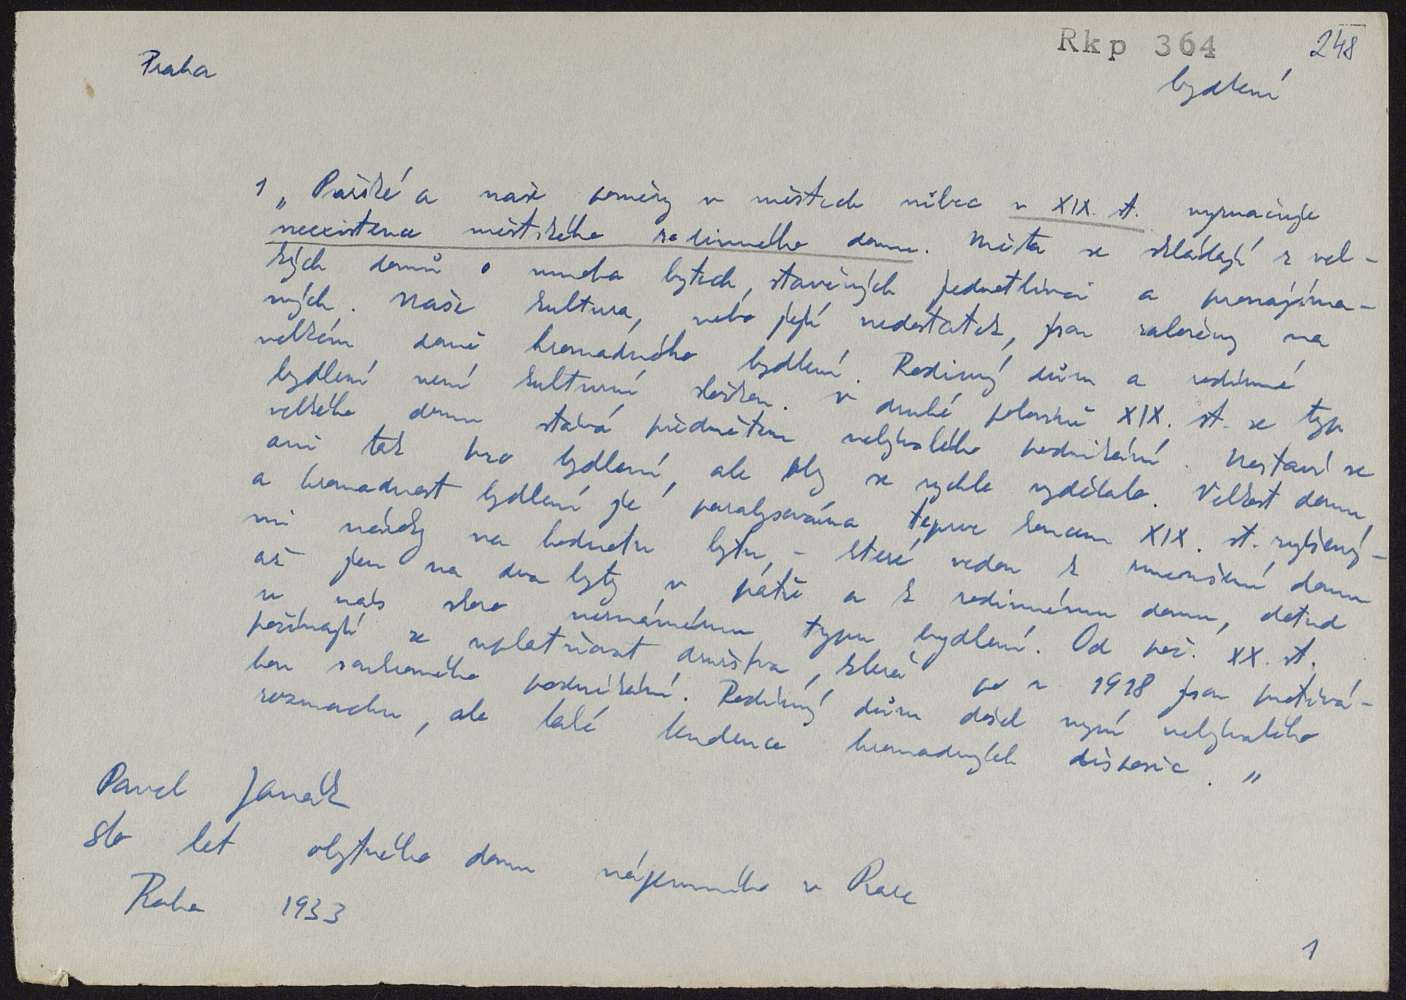 Praha
Rkp 364
248
bydlení
1 „Pařížské a naše poměry v městech vůbec v XIX. st. vyznačuje
neexistence městského rodinného domu. Města se skládají z vel-
kých domů o mnoha bytech, stavěných jednotlivci a pronajíma-
ných. Naše kultura, nebo její nedostatek, jsou založeny na
velkém domě hromadného bydlení. Rodinný dům a rodinné
bydlení není kulturní složkou. V druhé polovině XIX. st. se typ
velkého domu stává předmětem nebývalého podnikání. Nestaví se
ani tak pro bydlení, ale aby se rychle vydělalo. Velikost domu,
a hromadnost bydlení je paralysována teprve koncem XIX. st. zvýšený-
mi nároky na hodnotu bytu, - které vedou k zmenšení domu
až jen na dva byty v patře a k rodinnému domu, dotud
u nás skoro neznámému typu bydlení. Od poč. XX. st.
počínají se uplatňovat družstva, která po r. 1918 jsou protivá-
hou soukromého podnikání. Rodinný dům došel nyní nebývalého
rozmachu, ale také tendence hromadných disposic."
Pavel Janák
Sto let obytného domu nájemního v Praze
Praha 1933
1